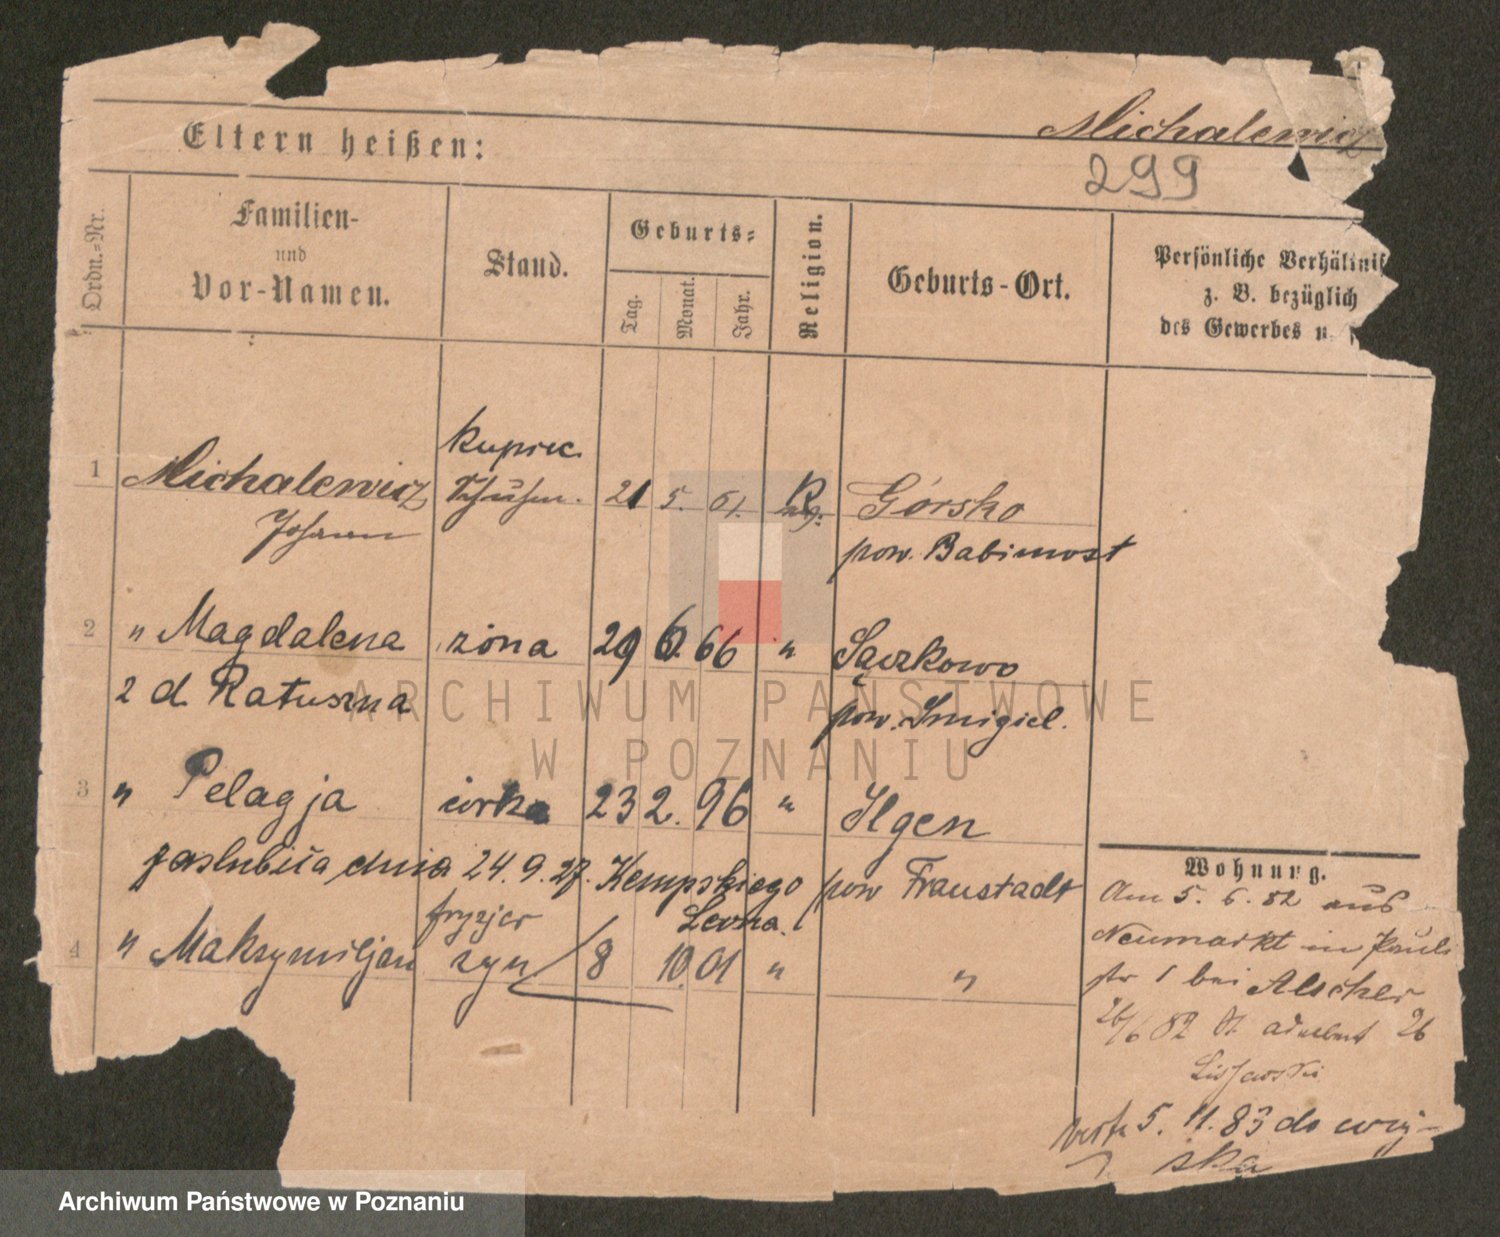 Michalewicz
Eltern heißen:
299
Ordn.=Nr.
Familien-
und
Vor-Namen.
Stand.
Geburts=
Tag.
Monat.
Jahr.
Religion.
Geburts-Ort.
Persönliche Verhältnis
z. B. bezüglich
des Gewerbes u.
kupiec
1 Michalewicz 21 5. 61. Górsko
Johann pow. Babimost
2 " Magdalena żona 29 6. 66 " Sączkowo
2 d Ratuszna pow. Śmigiel.
3 " Pelagja córka 23 2. 96 " Ilgen
zaślubiła dnia 24.9.27. Kempskiego pow Fraustadt
fryzjer Leona.
4 " Maksymiljan syn 8 10. 01 " "
Wohnung.
Am 5. 6. 82 aus
Neumarkt in Pauli
str 1 bei Alscher
26/6 82 St. Adalbert 26
5. 11. 83 do woj-
ska
ARCHIWUM PAŃSTWOWE
W POZNANIU
Archiwum Państwowe w Poznaniu